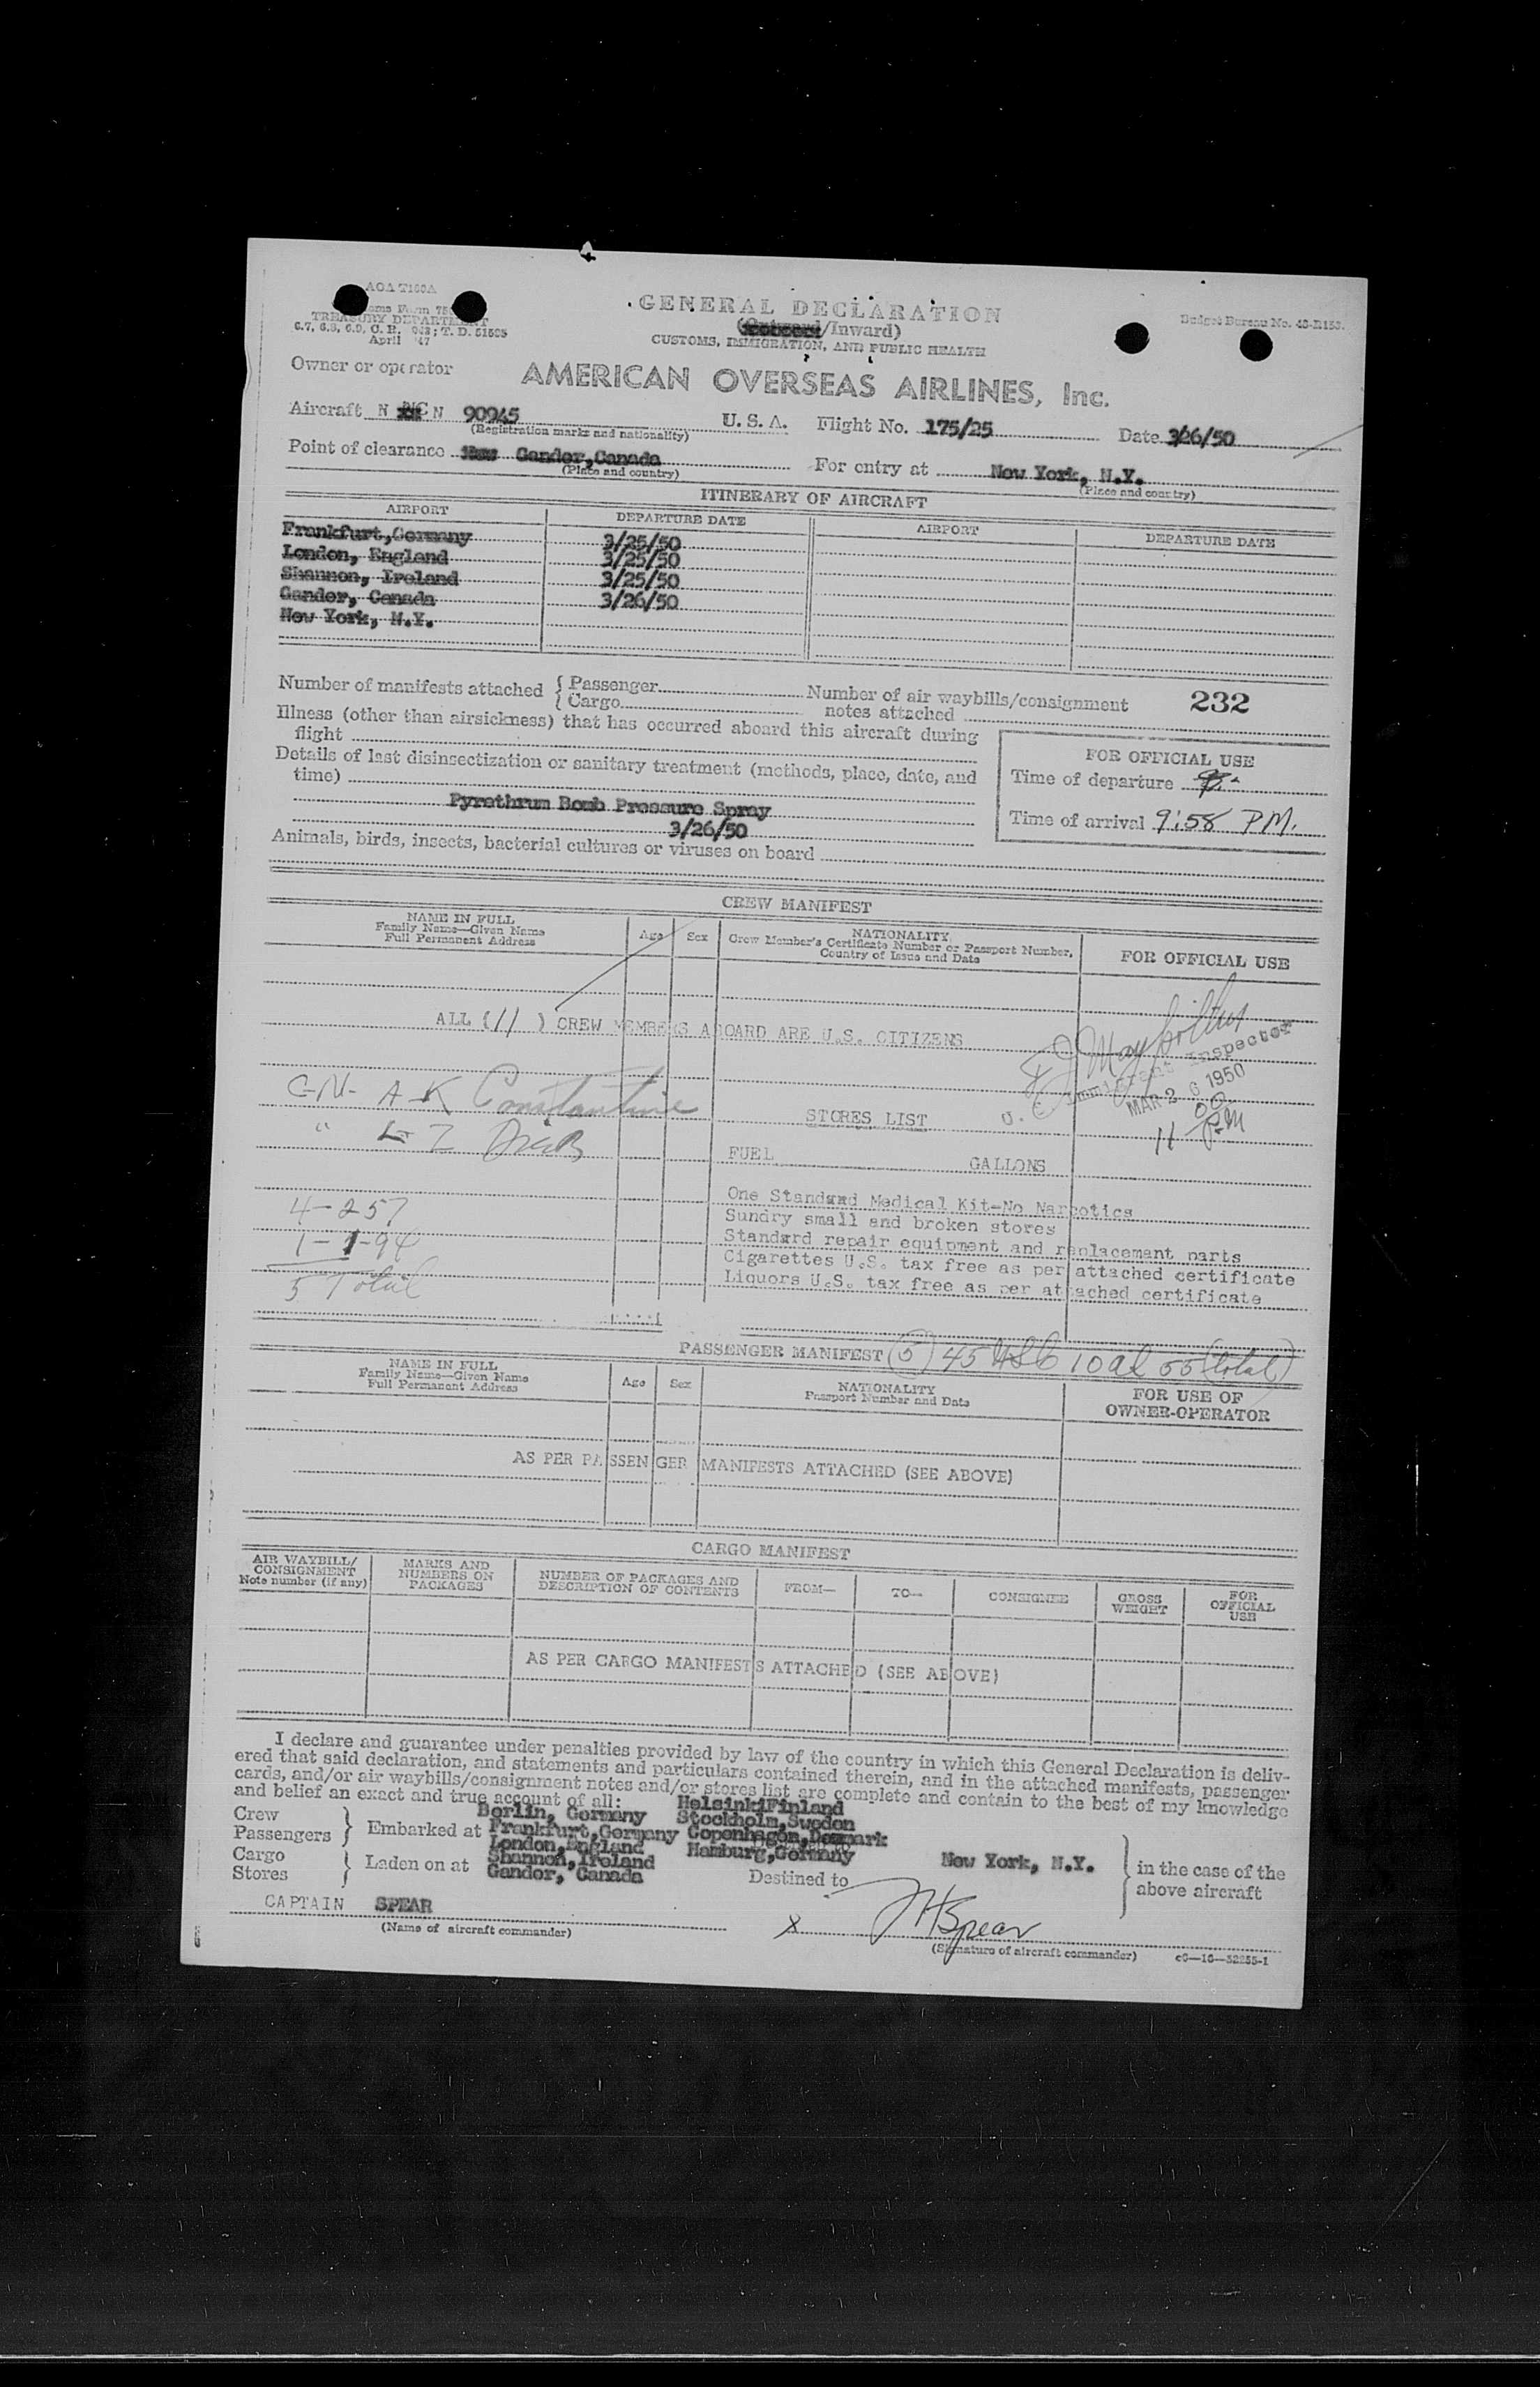 AOA T100A
Customs Form 75
TREASURY DEPARTMENT
6.7, 6.8, 6.9, C. R. 943; T. D. 51505
April '47
GENERAL DECLARATION
(Outward/Inward)
CUSTOMS, IMMIGRATION, AND PUBLIC HEALTH
Budget Bureau No. 48-R153.
Owner or operator AMERICAN OVERSEAS AIRLINES, Inc.
Aircraft N NC N 90945 U. S. A. Flight No. 175/25 Date 3/26/50
(Registration marks and nationality)
Point of clearance Gander,Canada For entry at New York, N.Y.
(Place and country) (Place and country)
ITINERARY OF AIRCRAFT
AIRPORT DEPARTURE DATE AIRPORT DEPARTURE DATE
Frankfurt,Germany 3/25/50
London, England 3/25/50
Shannon, Ireland 3/25/50
Gander, Canada 3/26/50
New York, N.Y.
Number of manifests attached { Passenger
{ Cargo
Number of air waybills/consignment
notes attached
232
Illness (other than airsickness) that has occurred aboard this aircraft during
flight
Details of last disinsectization or sanitary treatment (methods, place, date, and
time)
Pyrethrum Bomb Pressure Spray
3/26/50
FOR OFFICIAL USE
Time of departure
Time of arrival 9:58 PM.
Animals, birds, insects, bacterial cultures or viruses on board
CREW MANIFEST
NAME IN FULL
Family Name—Given Name
Full Permanent Address
Age Sex
NATIONALITY
Crew Member's Certificate Number or Passport Number,
Country of Issue and Date
FOR OFFICIAL USE
ALL (11) CREW MEMBERS ABOARD ARE U.S. CITIZENS
U. S. Immigrant Inspector
MAR 26 1950
11 00 PM
G-N- A-K Constantine
STORES LIST
FUEL GALLONS
One Standard Medical Kit-No Narcotics
Sundry small and broken stores
Standard repair equipment and replacement parts
Cigarettes U.S. tax free as per attached certificate
Liquors U.S. tax free as per attached certificate
4-257
1-1-94
5 Total
PASSENGER MANIFEST (5) 45 USC 10 al 55 (total)
NAME IN FULL
Family Name—Given Name
Full Permanent Address
Age Sex
NATIONALITY
Passport Number and Date
FOR USE OF
OWNER-OPERATOR
AS PER PASSENGER MANIFESTS ATTACHED (SEE ABOVE)
CARGO MANIFEST
AIR WAYBILL/
CONSIGNMENT
Note number (if any)
MARKS AND
NUMBERS ON
PACKAGES
NUMBER OF PACKAGES AND
DESCRIPTION OF CONTENTS
FROM— TO— CONSIGNEE
GROSS
WEIGHT
FOR
OFFICIAL
USE
AS PER CARGO MANIFESTS ATTACHED (SEE ABOVE)
I declare and guarantee under penalties provided by law of the country in which this General Declaration is deliv-
ered that said declaration, and statements and particulars contained therein, and in the attached manifests, passenger
cards, and/or air waybills/consignment notes and/or stores list are complete and contain to the best of my knowledge
and belief an exact and true account of all:
Crew
Passengers } Embarked at
Cargo
Stores } Laden on at
Berlin, Germany HelsinkiFinland
Frankfurt,Germany Stockholm,Sweden
London,England Copenhagen,Denmark
Shannon,Ireland Hamburg,Germany
Gander, Canada
Destined to New York, N.Y. } in the case of the
above aircraft
CAPTAIN SPEAR
(Name of aircraft commander)
x JHSpear
(Signature of aircraft commander) c6—16—52255-1